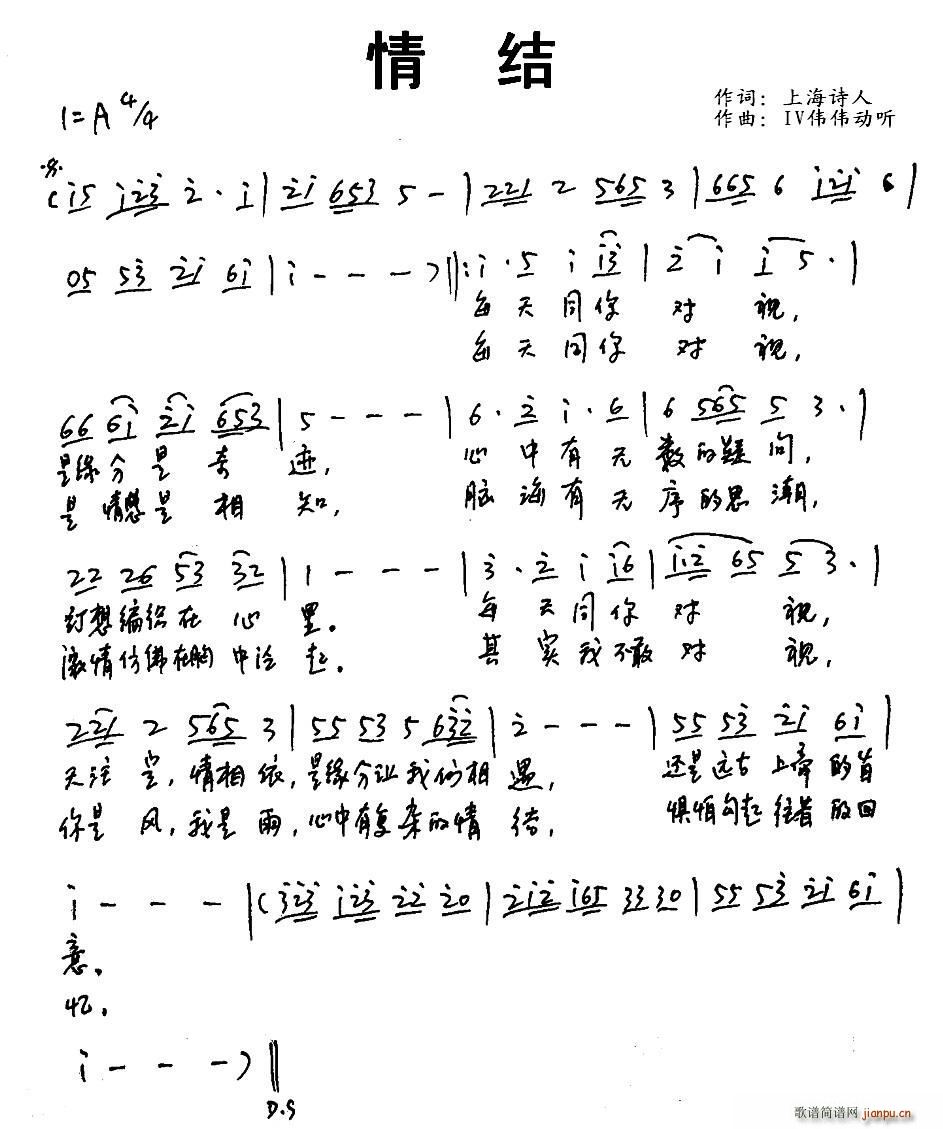 情 结
1=A 4/4
作词：上海诗人
作曲：IV伟伟动听
(i5 i23 2·i | 2i 653 5 - | 221 2 565 3 | 665 6 i2i 6 |
05 53 2i 6i | i - - - ) ‖: i·5 i i3 | 2 i i 5· |
每天同你 对 视，
每天同你 对 视，
66 6i 2i 653 | 5 - - - | 6·2 i·6 | 6 565 5 3· |
是缘分是 奇 迹， 心中有无 数的疑问，
是情愁是 相 知， 脑海有无 序的思潮，
22 26 53 32 | 1 - - - | 3·2 i i6 | i2 65 5 3· |
幻想编织在 心 里。 每天同你 对 视，
激情仿佛在胸 中 起。 其实我不敢 对 视，
221 2 565 3 | 55 53 5 632 | 2 - - - | 55 53 2i 6i |
天注定，情相依，是缘分让我们相 遇， 还是远古上帝的旨
你是风，我是雨，心中有复杂的情 结， 惧怕勾起往昔的回
i - - - | (323 i23 22 20 | 2i2 i65 33 30 | 55 53 2i 6i |
意。
忆。
i - - - ) ‖
D.S
歌谱简谱网 jianpu.cn